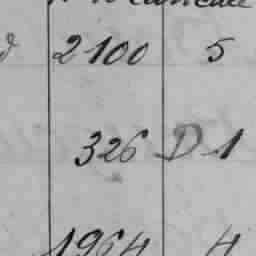 2100 5
326 D 1
1964 4